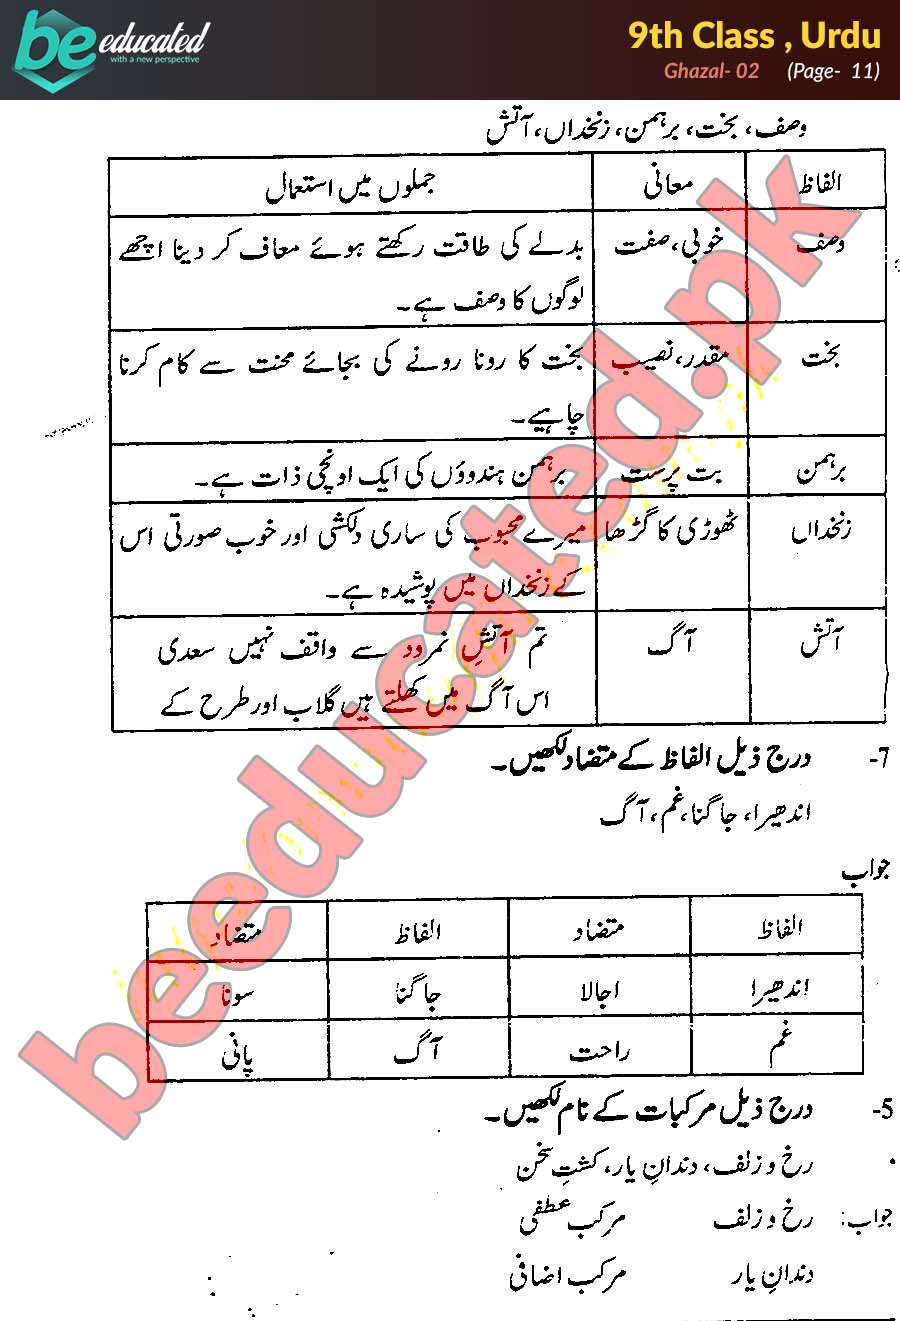 be educated
with a new perspective
9th Class , Urdu
Ghazal- 02 (Page- 11)
وصف، بخت، برہمن، زنخداں، آتش
الفاظ معانی جملوں میں استعمال
وصف خوبی، صفت بدلے کی طاقت رکھتے ہوئے معاف کر دینا اچھے
لوگوں کا وصف ہے۔
بخت مقدر، نصیب بخت کا رونا رونے کی بجائے محنت سے کام کرنا
چاہیے۔
برہمن بت پرست برہمن ہندوؤں کی ایک اونچی ذات ہے۔
زنخداں ٹھوڑی کا گڑھا میرے محبوب کی ساری دلکشی اور خوب صورتی اس
کے زنخداں میں پوشیدہ ہے۔
آتش آگ تم آتشِ نمرود سے واقف نہیں سعدی
اس آگ میں کھلتے ہیں گلاب اور طرح کے
7- درج ذیل الفاظ کے متضاد لکھیں۔
اندھیرا، جاگنا، غم، آگ
جواب
الفاظ متضاد الفاظ متضاد
اندھیرا اجالا جاگنا سونا
غم راحت آگ پانی
5- درج ذیل مرکبات کے نام لکھیں۔
رخ و زلف، دندانِ یار، کشتِ سخن
جواب: رخ و زلف مرکب عطفی
دندانِ یار مرکب اضافی
beeducated.pk